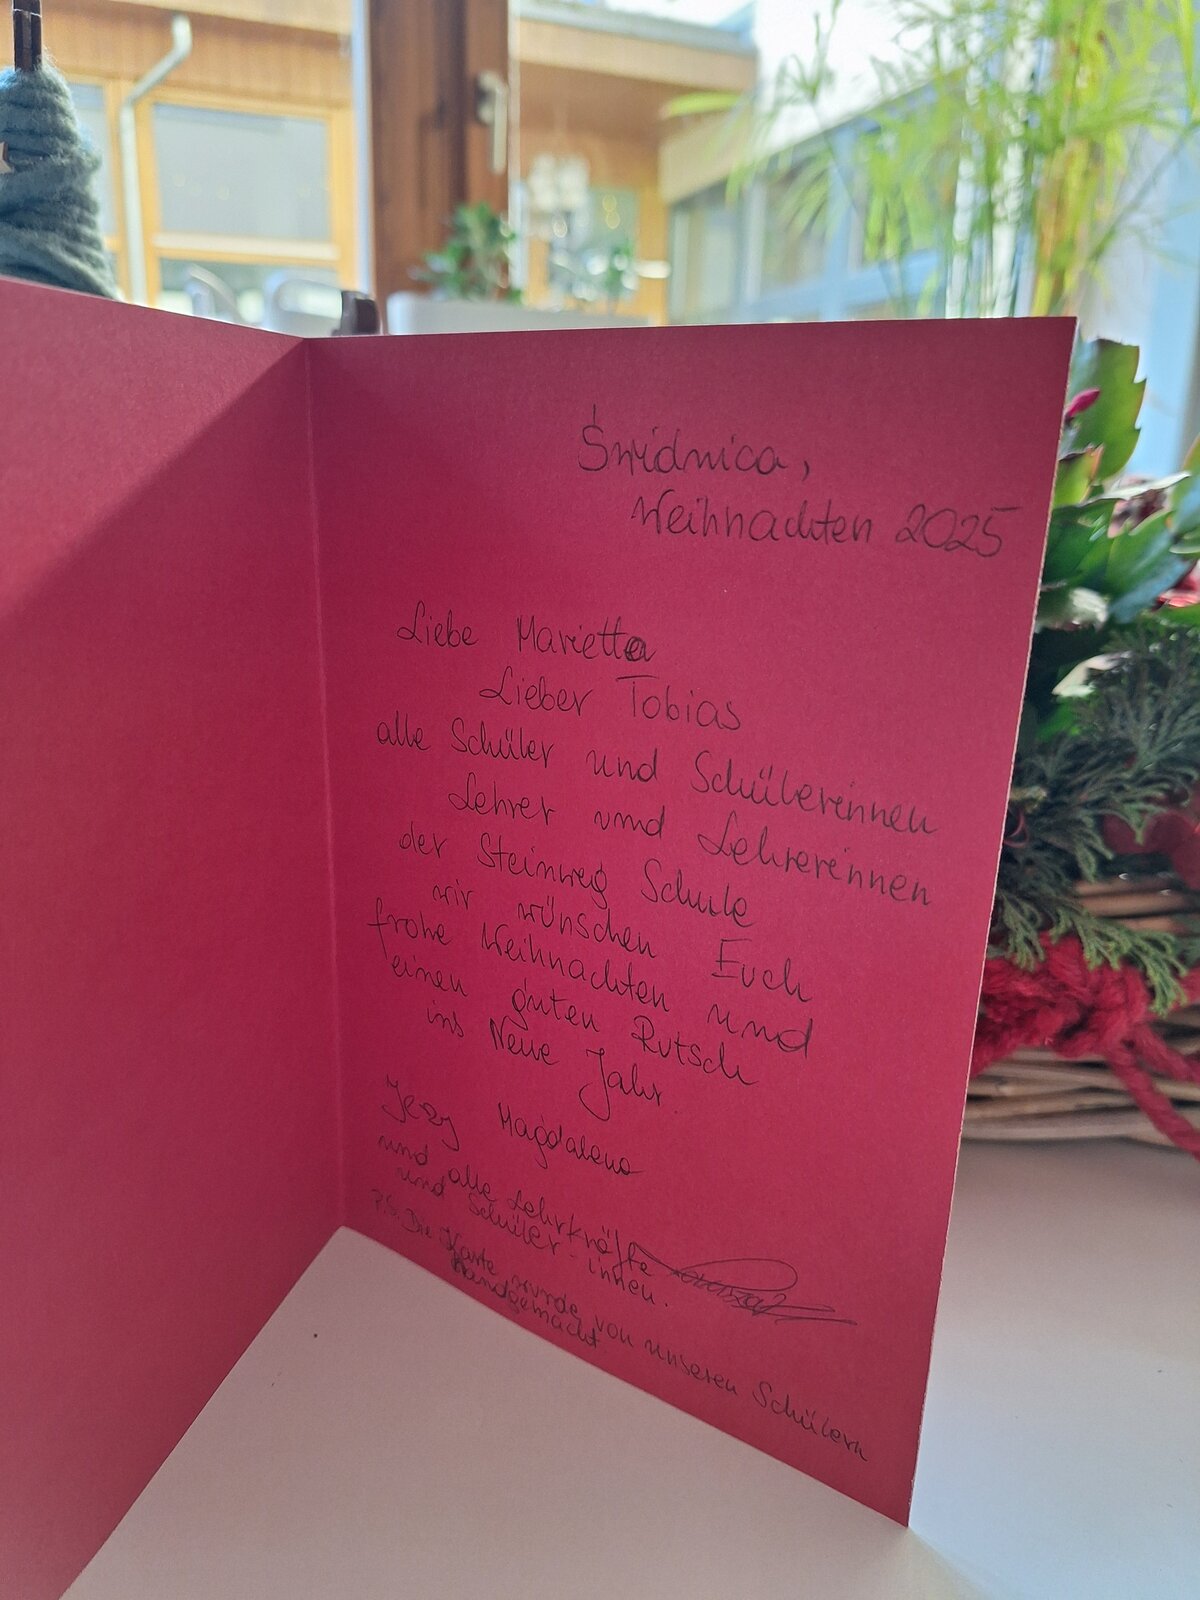 Świdnica,
Weihnachten 2025
Liebe Marietta
Lieber Tobias
alle Schüler und Schülerinnen
Lehrer und Lehrerinnen
der Steinweg Schule
wir wünschen Euch
frohe Weihnachten und
einen guten Rutsch
ins Neue Jahr
Magdalena
und alle Lehrkräfte
und Schüler-innen.
P.S. Die Karte wurde von unseren Schülern
handgemacht.